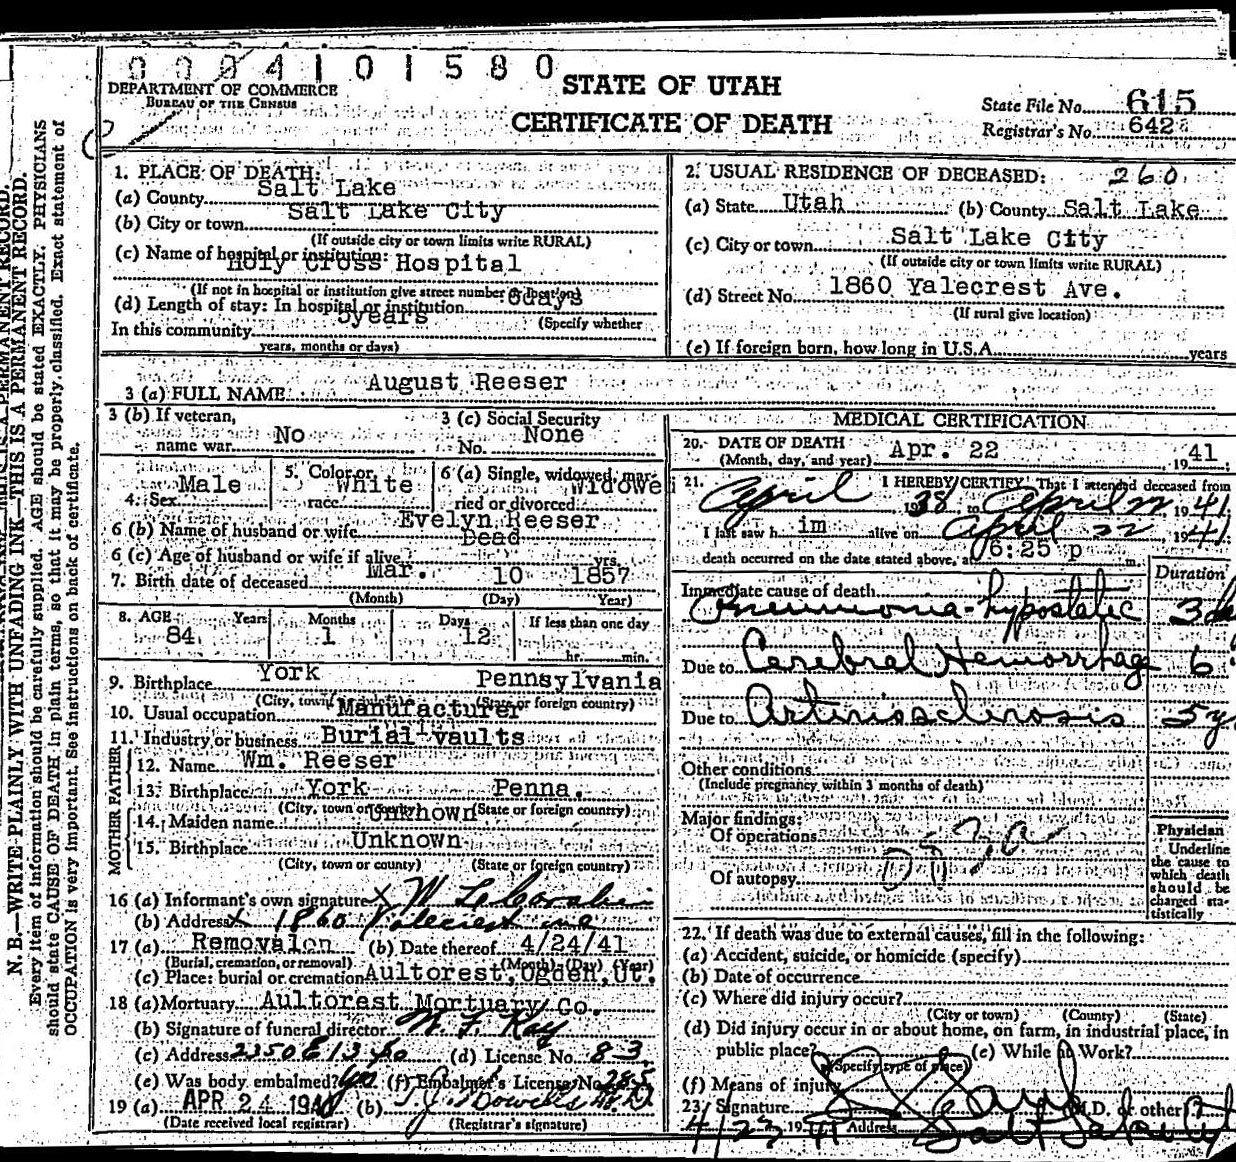 0004101580
DEPARTMENT OF COMMERCE
BUREAU OF THE CENSUS
STATE OF UTAH
CERTIFICATE OF DEATH
State File No. 615
Registrar's No. 642
1. PLACE OF DEATH:
(a) County Salt Lake
(b) City or town Salt Lake City
(If outside city or town limits write RURAL)
(c) Name of hospital or institution:
Holy Cross Hospital
(If not in hospital or institution give street number or location)
(d) Length of stay: In hospital or institution 6days
(Specify whether
In this community 5years
years, months or days)
2. USUAL RESIDENCE OF DECEASED: 260
(a) State Utah (b) County Salt Lake
(c) City or town Salt Lake City
(If outside city or town limits write RURAL)
(d) Street No. 1860 Yalecrest Ave.
(If rural give location)
(e) If foreign born, how long in U.S.A. years
3 (a) FULL NAME August Reeser
3 (b) If veteran, name war No
3 (c) Social Security No. None
4. Sex Male
5. Color or race White
6 (a) Single, widowed, married or divorced Widowed
6 (b) Name of husband or wife Evelyn Reeser
6 (c) Age of husband or wife if alive Dead yrs.
7. Birth date of deceased Mar. 10 1857
(Month) (Day) Year)
8. AGE Years Months Days If less than one day
84 1 12 hr. min.
9. Birthplace York Pennsylvania
(City, town or county) (State or foreign country)
10. Usual occupation Manufacturer
11. Industry or business Burial vaults
FATHER
12. Name Wm. Reeser
13. Birthplace York Penna.
(City, town or county) (State or foreign country)
MOTHER
14. Maiden name Unknown
15. Birthplace Unknown
(City, town or county) (State or foreign country)
16 (a) Informant's own signature X
(b) Address X 1860 Yalecrest Ave
17 (a) Removalon (b) Date thereof 4/24/41
(Burial, cremation, or removal) (Month) (Day) (Year)
(c) Place: burial or cremation Aultorest, Ogden, Ut.
18 (a) Mortuary Aultorest Mortuary Co.
(b) Signature of funeral director W. F. Kay
(c) Address 2350 E 13 So (d) License No. 83
(e) Was body embalmed? yes (f) Embalmer's License No. 285
19 (a) APR 24 1941 (b) M.D.
(Date received local registrar) (Registrar's signature)
MEDICAL CERTIFICATION
20. DATE OF DEATH
(Month, day, and year) Apr. 22 , 19 41
21. I HEREBY CERTIFY, That I attended deceased from
April 1938 to April 22 1941.
I last saw h im alive on April 22 , 1941.
death occurred on the date stated above, at 6:25 p m.
Duration
Immediate cause of death
Pneumonia-hypostatic 3 da
Due to Cerebral Hemorrhage 6
Due to Arteriosclerosis 5 y
Other conditions
(Include pregnancy within 3 months of death)
Major findings:
Of operations
Of autopsy
Physician
Underline the cause to which death should be charged statistically
22. If death was due to external causes, fill in the following:
(a) Accident, suicide, or homicide (specify)
(b) Date of occurrence
(c) Where did injury occur?
(City or town) (County) (State)
(d) Did injury occur in or about home, on farm, in industrial place, in
public place? (e) While at Work?
(Specify type of place)
(f) Means of injury
23. Signature M.D. or other
4/23 1941 Address Salt Lake City
N. B.—WRITE PLAINLY WITH UNFADING INK—THIS IS A PERMANENT RECORD.
Every item of information should be carefully supplied. AGE should be stated EXACTLY. PHYSICIANS
should state CAUSE OF DEATH in plain terms, so that it may be properly classified. Exact statement of
OCCUPATION is very important. See instructions on back of certificate.